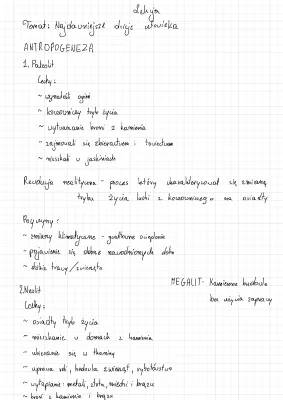 Lekcja
Temat: Najdawniejsze dzieje człowieka
ANTROPOGENEZA
1. Paleolit
Cechy:
~ wynaleźli ogień
~ koczowniczy tryb życia
~ wytwarzanie broni z kamienia
~ zajmowali się zbieractwem i łowiectwem
~ mieszkali w jaskiniach
Rewolucja neolityczna - proces który charakteryzował się zmianą
trybu życia ludzi z koczowniczego na osiadły
Przyczyny:
~ zmiany klimatyczne - gwałtowne ocieplenie
~ pojawienie się dobrze nawodnionych
~ dzikie trawy/zwierzęta
MEGALIT - Kamienna budowla
bez użycia zaprawy
2. Neolit
Cechy:
~ osiadły tryb życia
~ mieszkanie w domach z kamienia
~ ubieranie się w tkaniny
~ uprawa roli, hodowla zwierząt, rybołówstwo
~ wytapianie: metali, złota, miedzi i brązu
~ broń z kamienia i brązu